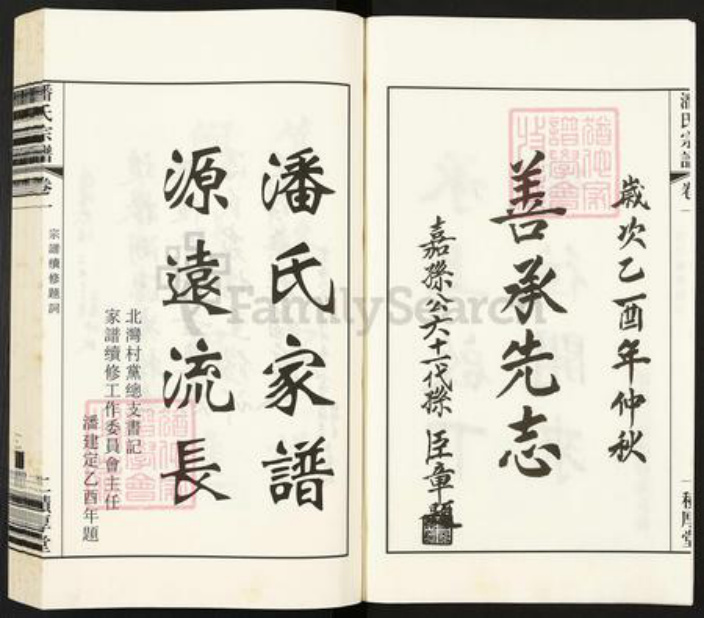 歲次乙酉年仲秋
善承先志
嘉孫公六十一代孫 臣章題
潘氏家譜
源遠流長
北灣村黨總支書記
家譜續修工作委員會主任
潘建定乙酉年題
潘氏宗譜 卷一
宗譜續修題詞
潘氏宗譜 卷一
FamilySearch